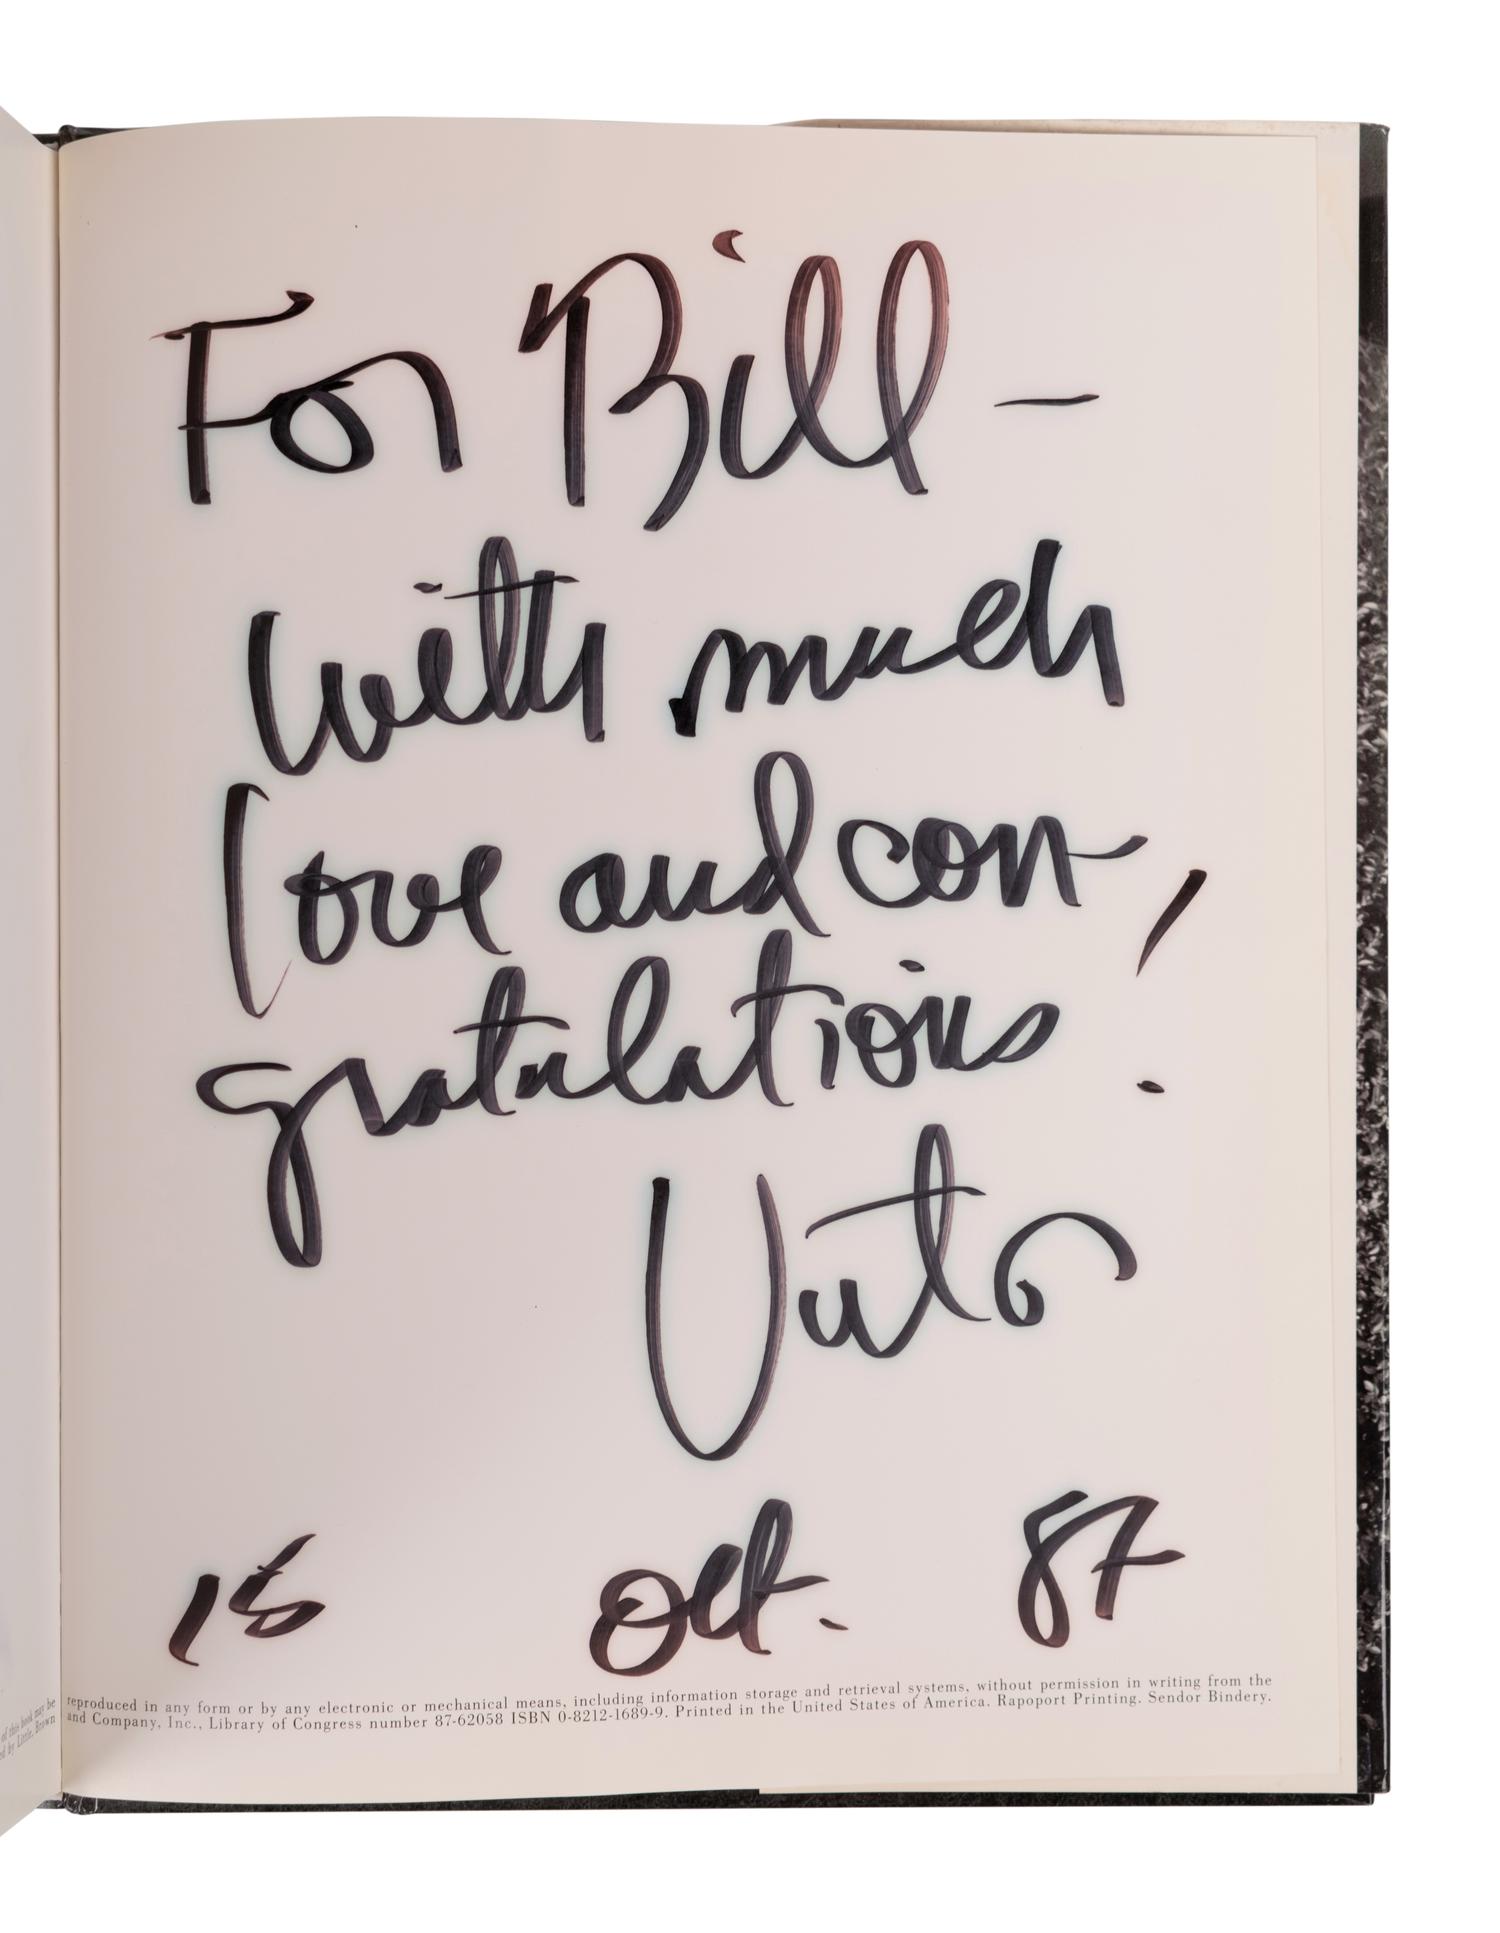 For Bill –
With much
love and con-
gratulations!
15 Oct. 87
reproduced in any form or by any electronic or mechanical means, including information storage and retrieval systems, without permission in writing from the
and Company, Inc., Library of Congress number 87-62058 ISBN 0-8212-1689-9. Printed in the United States of America. Rapoport Printing. Sendor Bindery.
of this book may be
ed by Little, Brown